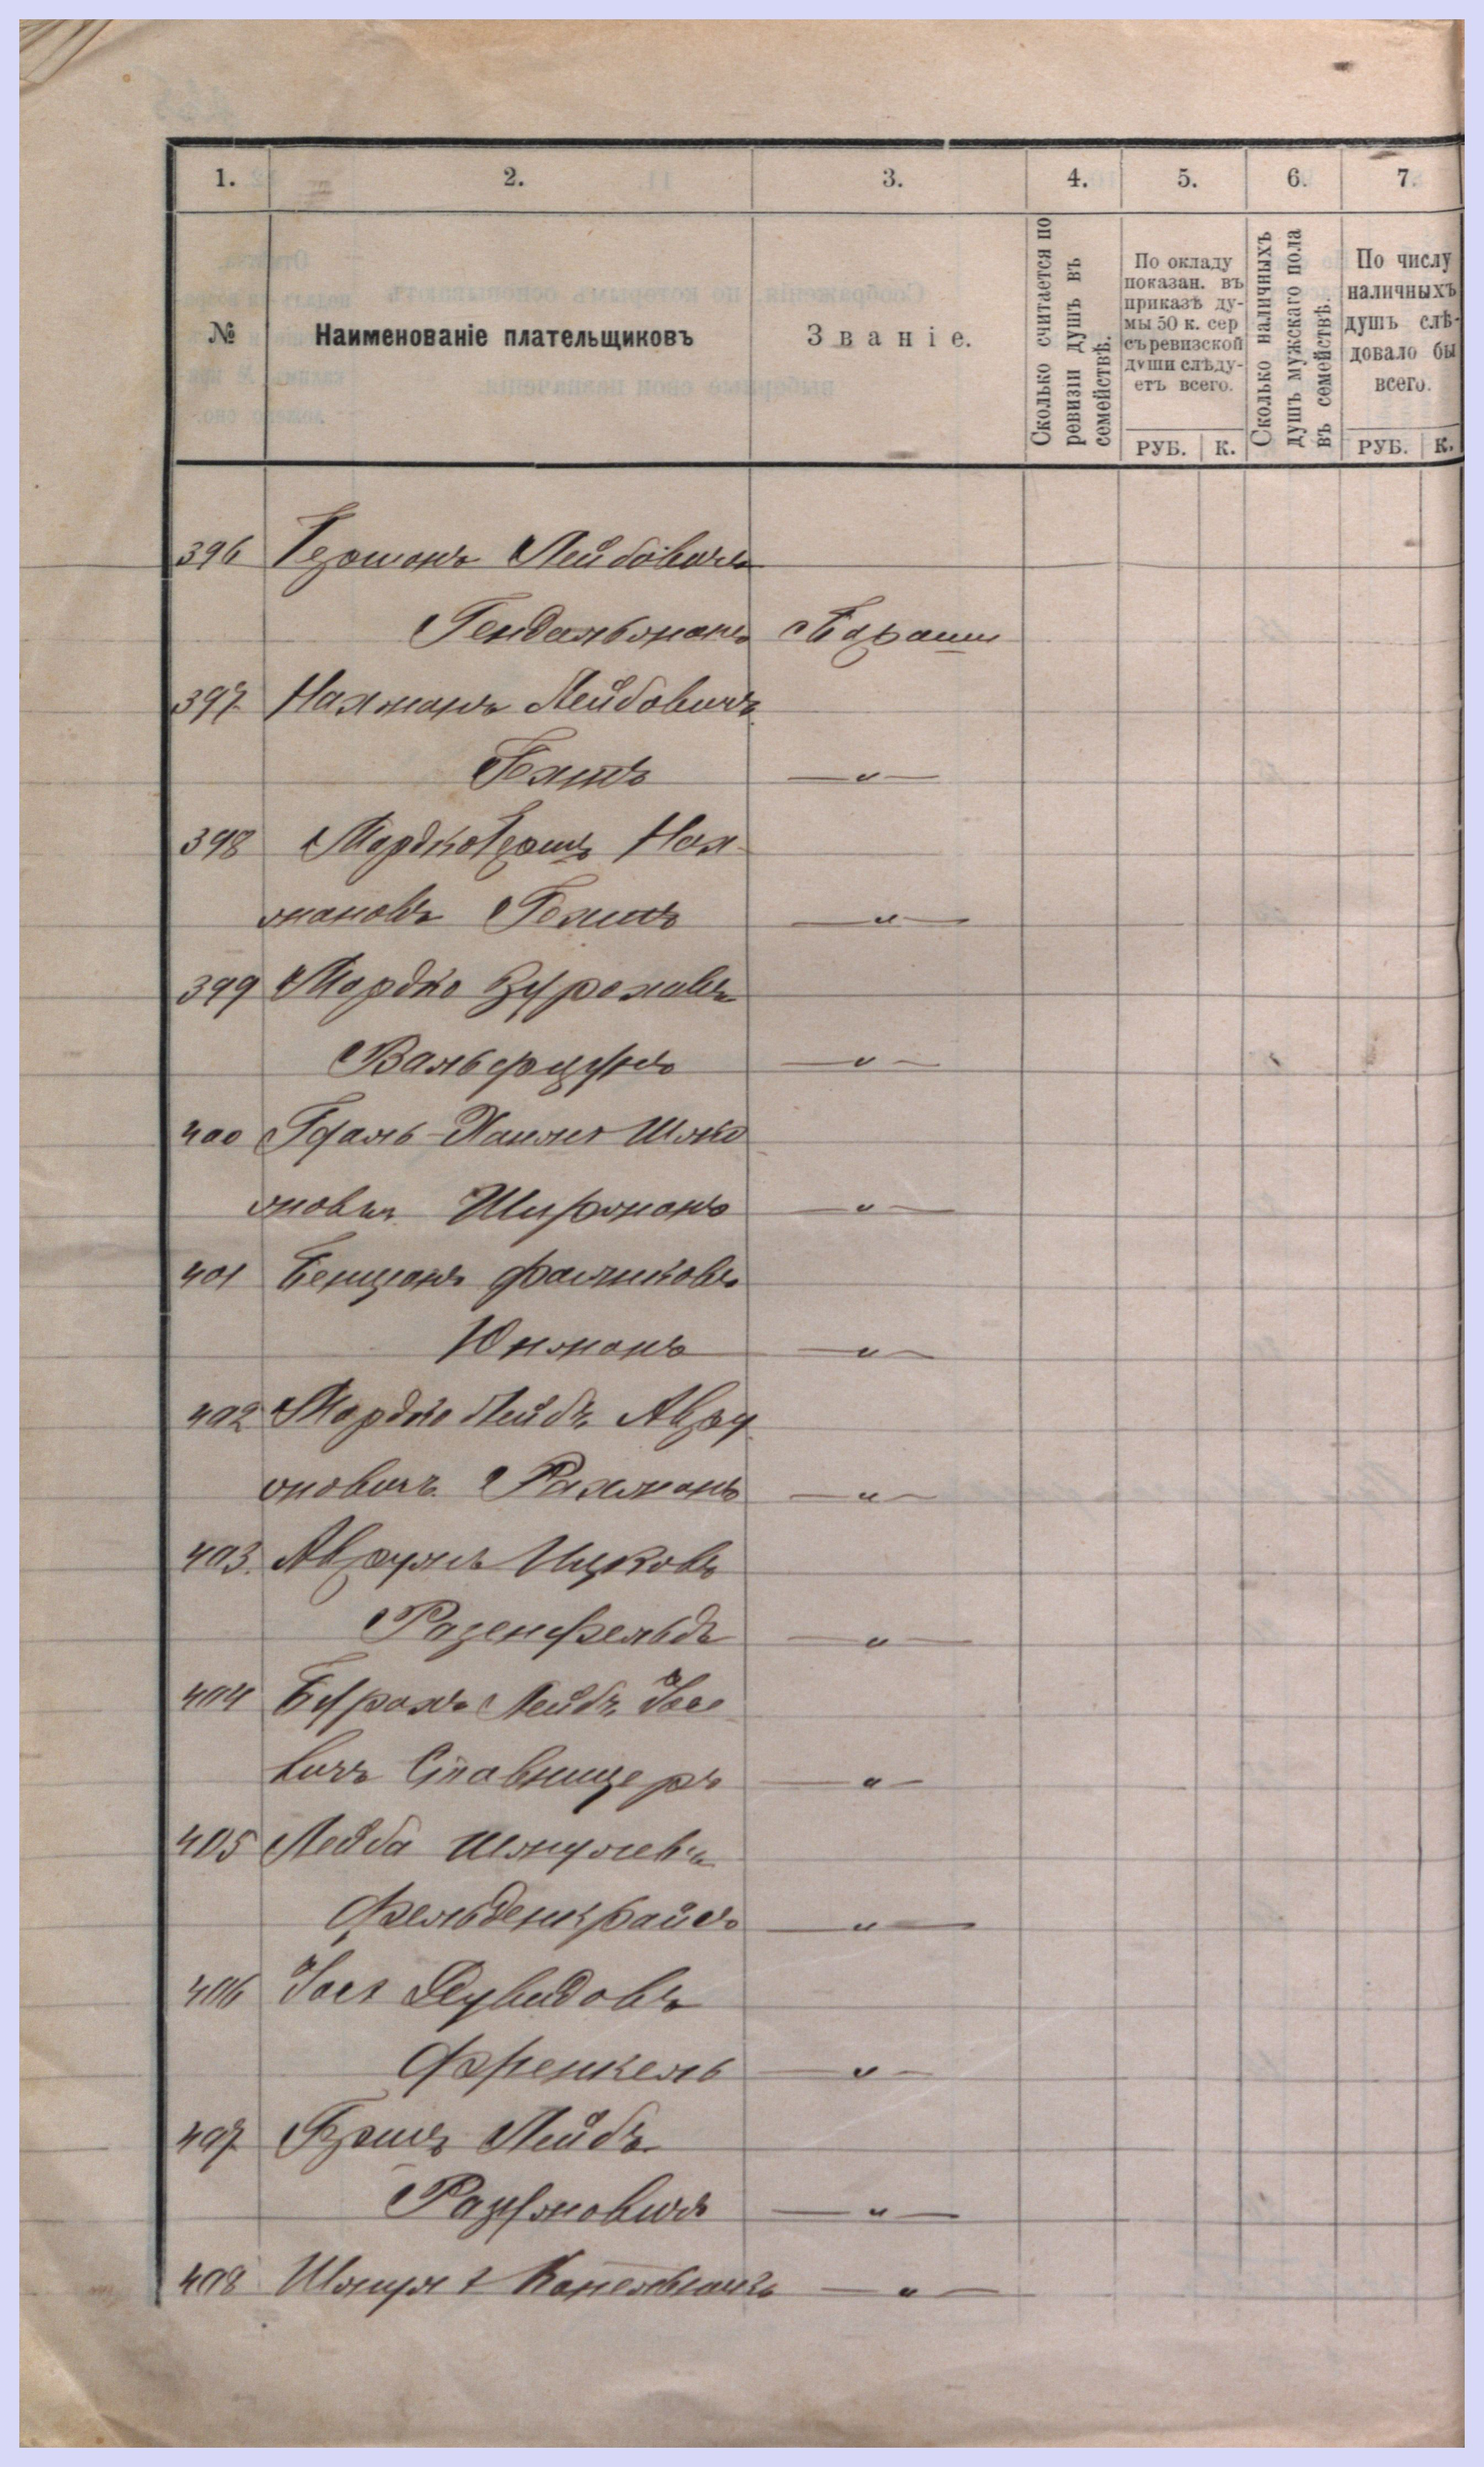 1. 2. 3. 4. 5. 6. 7.
№
Наименованіе плательщиковъ
Званіе.
Сколько считается по
ревизіи душъ въ
семействѣ.
По окладу
показан. въ
приказѣ ду-
мы 50 к. сер
съ ревизской
души слѣду-
етъ всего.
РУБ. К.
Сколько наличныхъ
душъ мужскаго пола
въ семействѣ.
По числу
наличныхъ
душъ слѣ-
довало бы
всего.
РУБ. К.
396 Гершонъ Лейбовичъ
Гендельманъ
397 Нахманъ Лейбовичъ
—„—
398 Мордко Гершъ Нах-
мановъ —„—
399 Мордко
—„—
400 Шлио
мовичъ —„—
401 Бенционъ
Юкманъ —„—
402 Мордко Лейбъ Авру
мовичъ Рахманъ —„—
403. Аврумъ Ицковъ
Разенфельдъ —„—
404 Бурохъ Лейбъ Іосе
вичъ Ставницеръ —„—
405 Лейба Шмулевъ
Фельденкрайзъ —„—
406 Іось Дувидовъ
Френкель —„—
407 Гершъ Лейбъ
—„—
408 Шмуль —„—